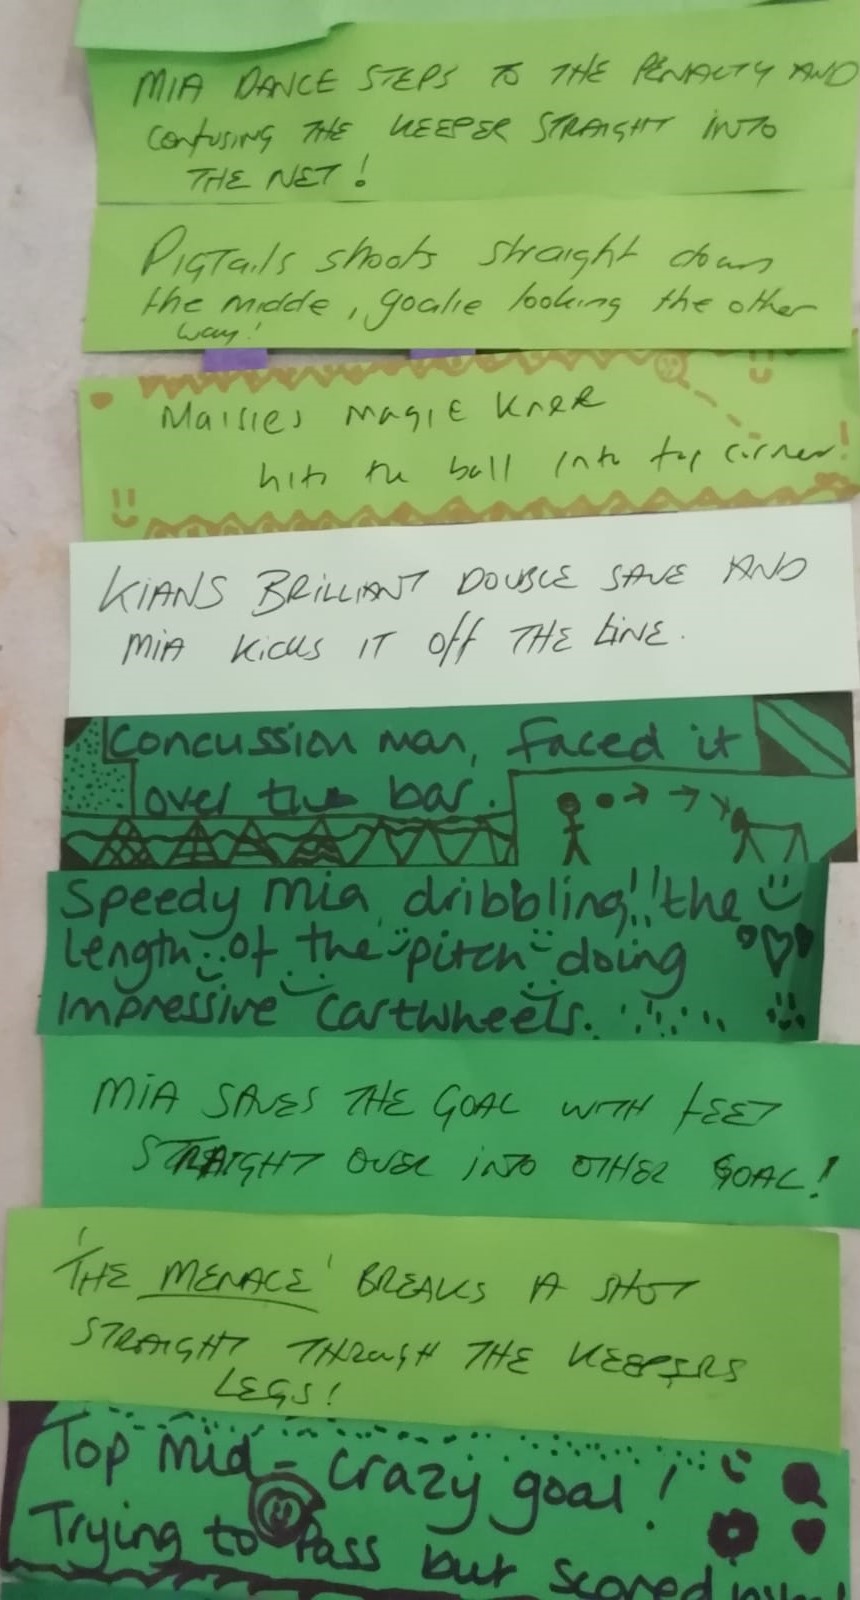 MIA DANCE STEPS TO THE PENALTY AND
CONFUSING THE KEEPER STRAIGHT INTO
THE NET!
PIGTails shoots straight down
the midde, goalie looking the other
way!
Maisies magic knee
hits the ball into top corner!
KIANS BRILLIANT DOUBLE SAVE AND
MIA KICKS IT OFF THE LINE.
Concussion man, faced it
over the bar.
Speedy Mia dribbling!! the
length of the pitch doing
impressive cartwheels.
MIA SAVES THE GOAL WITH FEET
STRAIGHT OVER INTO OTHER GOAL!
'THE MENACE' BREAKS A SHOT
STRAIGHT THROUGH THE KEEPERS
LEGS!
Top Mid - crazy goal!
Trying to Pass but scored